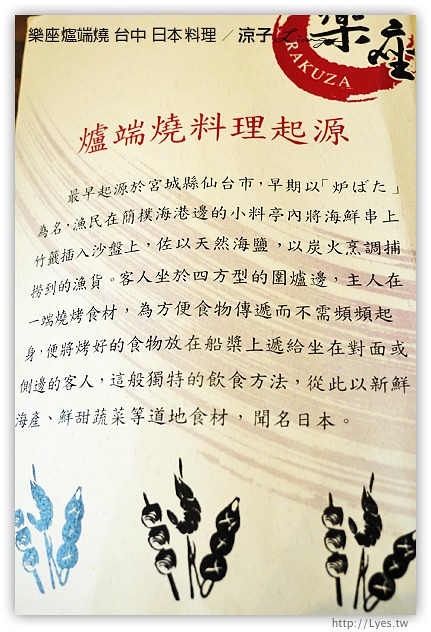 樂座爐端燒 台中 日本料理 ／ 涼子
樂座
RAKUZA
爐端燒料理起源
最早起源於宮城縣仙台市，早期以「炉ばた」
為名，漁民在簡樸海港邊的小料亭內將海鮮串上
竹籤插入沙盤上，佐以天然海鹽，以炭火烹調捕
撈到的漁貨。客人坐於四方型的圍爐邊，主人在
一端燒烤食材，為方便食物傳遞而不需頻頻起
身，便將烤好的食物放在船槳上遞給坐在對面或
側邊的客人，這般獨特的飲食方法，從此以新鮮
海產、鮮甜蔬菜等道地食材，聞名日本。
http://Lyes.tw